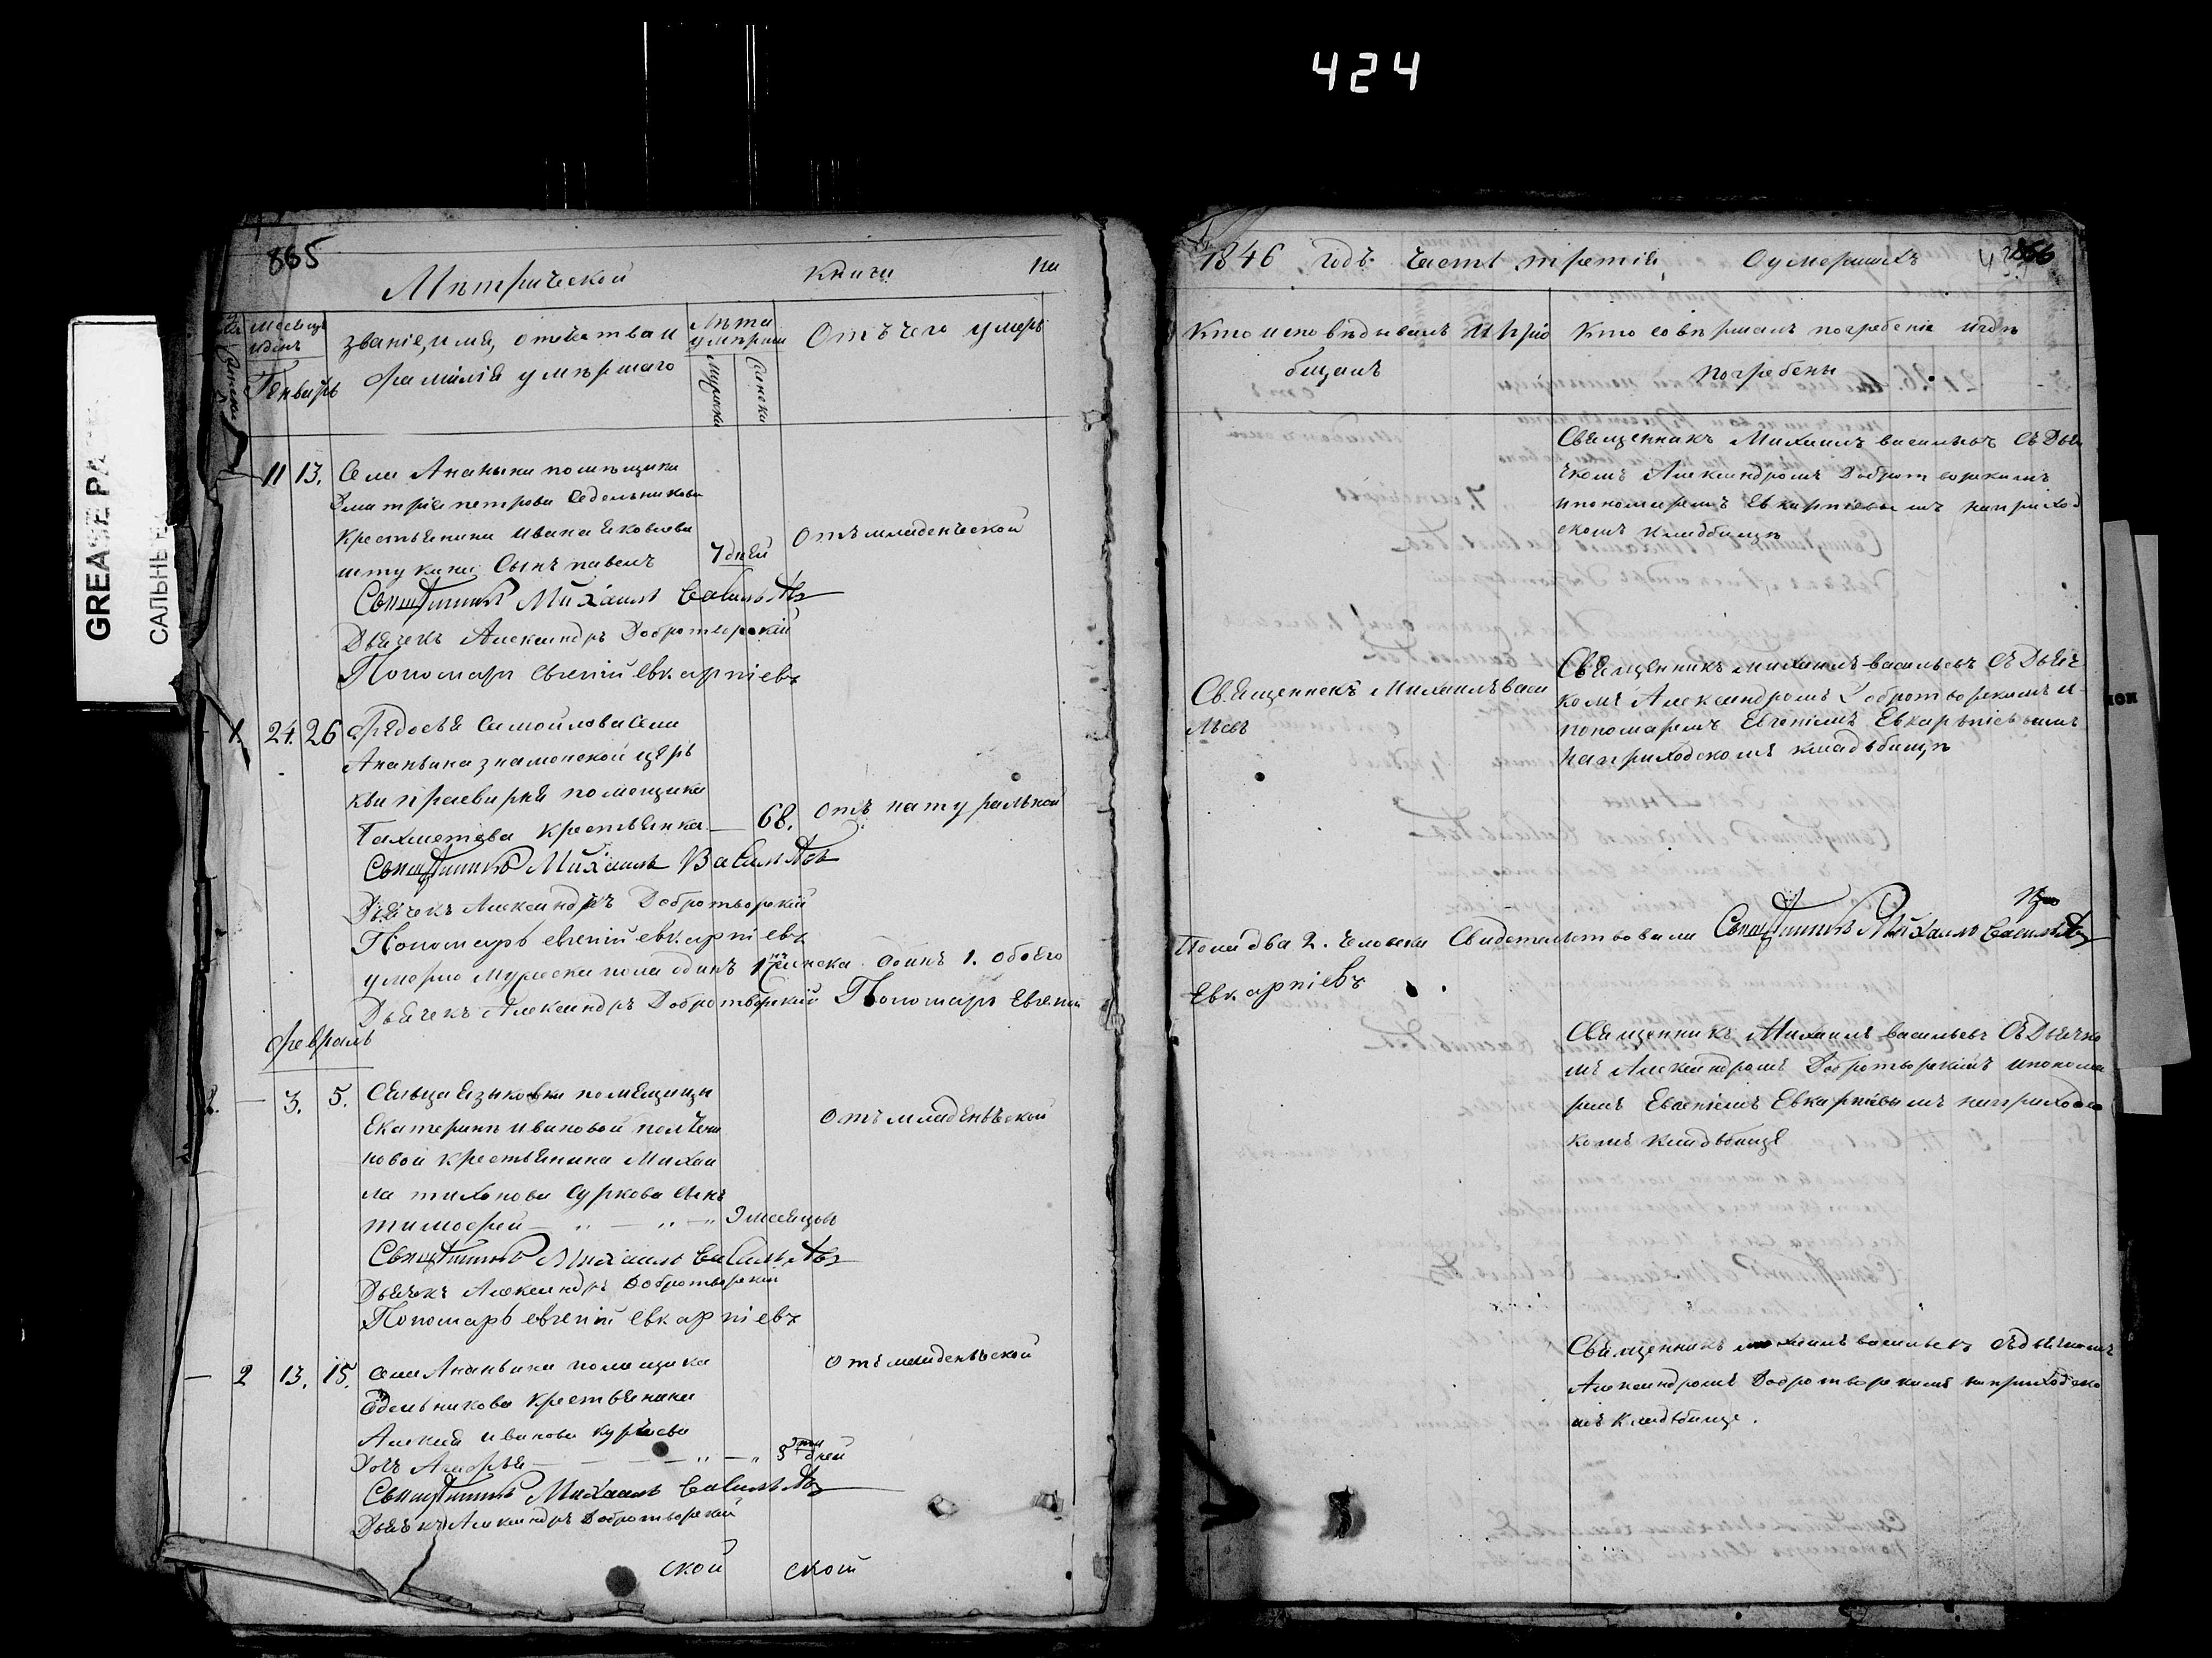 424
GREASE PA
САЛЬНЫЕ
865
Мѣтрической книги на
Месяцъ
и день
Генварь
званіе, имя, отечатва и
фамилія умѣршаго
Лѣта
умѣрши
Мужска
Женска
Отъ чего умеръ
11 13. Села Ананьина помѣщика
Дмитрія петрова Седельникова
крестьянина Ивана Яковлева
штукина Сынъ павелъ 7 дней отъ младенческой
Священникъ Михаилъ Васильевъ
Дьячекъ Александръ Добротворскій
Пономарь Евгеній Евкарпіевъ
1. 24. 26 Федосья Самойлова Села
Ананьина знаменской церь
кви просвирня помещика
Бахметева крестьянка — 68. отъ натуральной
Священникъ Михаилъ Васильевъ
Дьячекъ Александръ Добротворскій
Пономарь евгеній евкарпіевъ
умерло Мужеска пола одинъ 1 женска одинъ 1. обоего
Дьячекъ Александръ Добротворскій Пономарь Евгеній
февраль
— 3. 5. Сельца Языковки помещицы
Екатерины ивановой
новой крестьянина Михаи
ла тихонова Суркова сынъ
тимофей — „ — „ — „ 9 месяцовъ
отъ младенческой
Священникъ Михаилъ Васильевъ
Дьячекъ Александръ Добротворскій
Пономарь евгеній евкарпіевъ
— 2 13. 15. села Ананьина помещика
Седельникова крестьянина
Алексея иванова
Дочь Агафья — — — — „ — „ 5 дней
отъ младенческой
Священникъ Михаилъ Васильевъ
Дьячекъ Александръ Добротворскій
ской ской
1846 годъ. Часть третія, О умершихъ 866
Кто исповѣдывалъ и прiо
бщалъ
Кто совершалъ погребеніе и гдѣ
погребены
Священникъ Михаилъ васильевъ съ Дья
чкомъ Александромъ Добротворскимъ
и пономаремъ Евкарпіевымъ на приход
скомъ кладбищѣ
Священникъ Михаилъ васи
льевъ
Священникъ михаилъ васильевъ съ Дьяч
комъ Александромъ Добротворскимъ и
пономаремъ Евгеніемъ Евкарпіевымъ
на приходскомъ кладьбищѣ
Пола два 2. человека Свидетельствовали Священникъ Михаилъ Васильевъ
Евкарпіевъ
Священникъ Михаилъ васильевъ съ Дьячко
мъ Александромъ Добротворскимъ и понома
ремъ Евгеніемъ Евкарпіевымъ на приходс
комъ кладьбище
Священникъ михаилъ васильевъ съ дьячкомъ
Александромъ Добротворскимъ на приходско
мъ кладьбище.